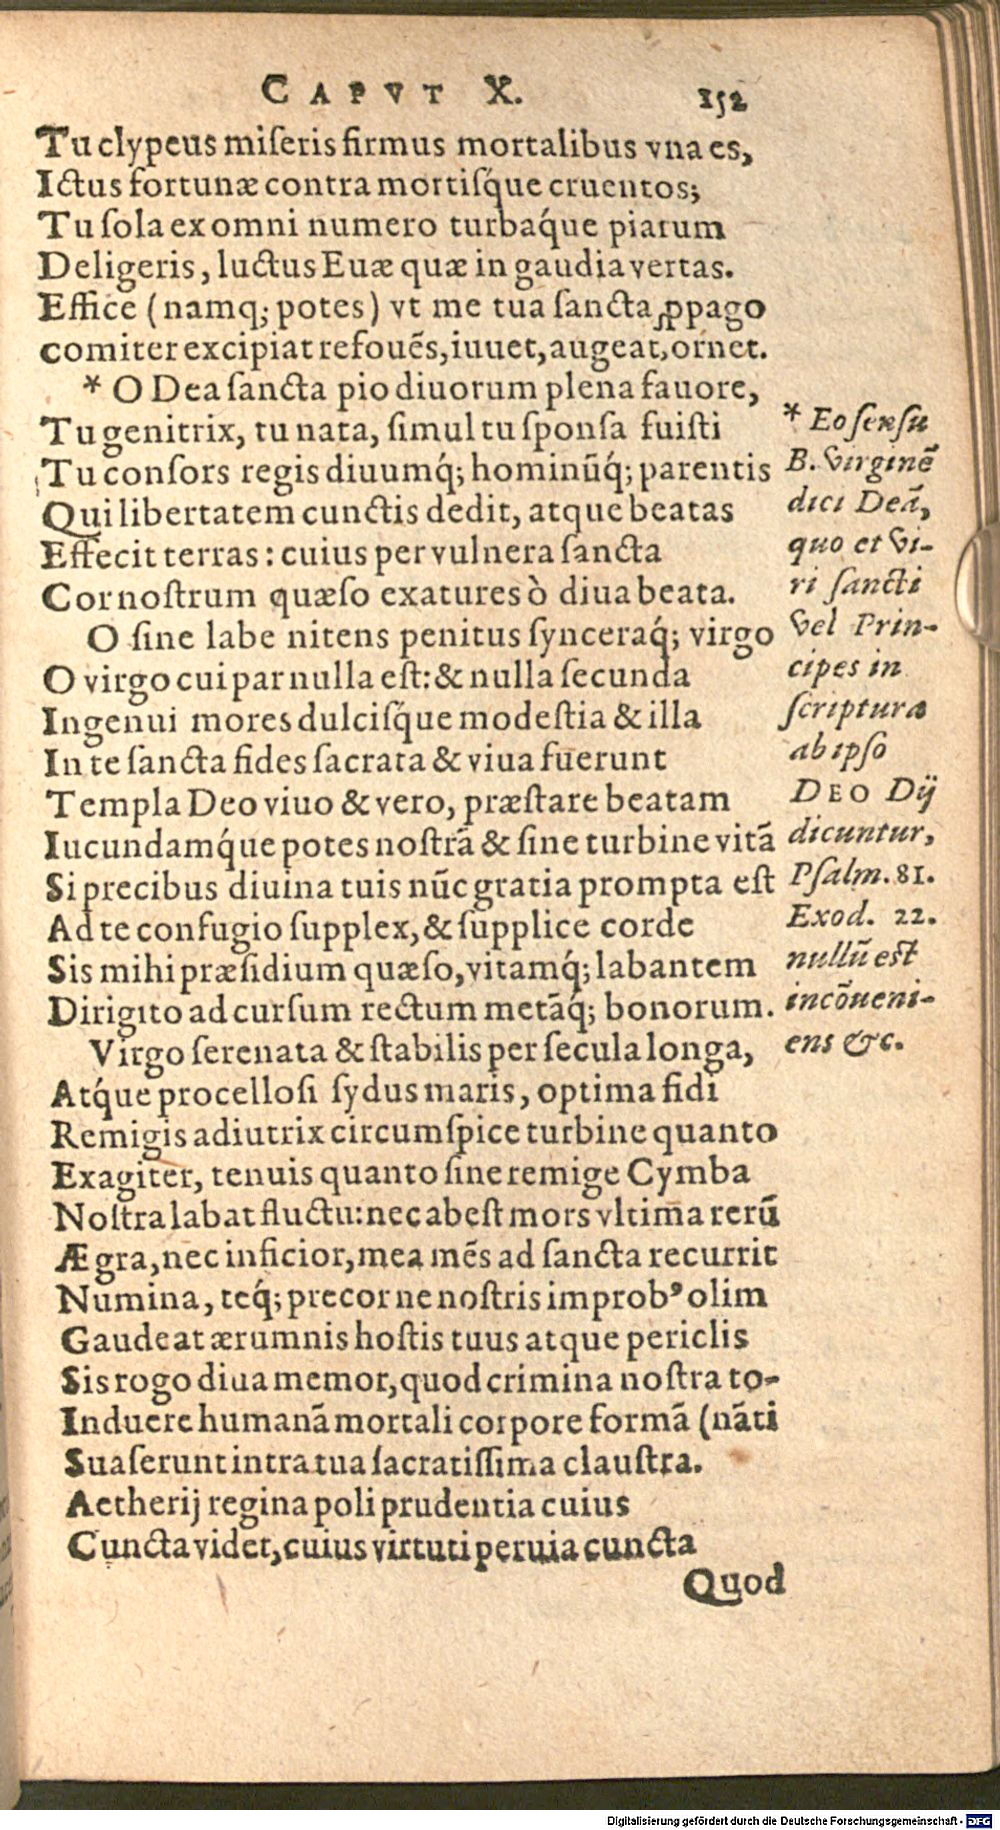 CAPVT X. 152
Tu clypeus miſeris firmus mortalibus vna es,
Ictus fortunæ contra mortiſq́ue cruentos;
Tu ſola ex omni numero turbaq́ue piarum
Deligeris, luctus Euæ quæ in gaudia vertas.
Effice (namq; potes) vt me tua ſancta ꝓpago
comiter excipiat refouẽs, iuuet, augeat, ornet.
* O Dea ſancta pio diuorum plena fauore,
Tu genitrix, tu nata, ſimul tu ſponſa fuiſti
Tu conſors regis diuumq́; hominũq́; parentis
Qui libertatem cunctis dedit, atque beatas
Effecit terras: cuius per vulnera ſancta
Cor noſtrum quæſo exatures ò diua beata.
O ſine labe nitens penitus ſynceraq́; virgo
O virgo cui par nulla eſt: & nulla ſecunda
Ingenui mores dulciſq́ue modeſtia & illa
In te ſancta fides ſacrata & viua fuerunt
Templa Deo viuo & vero, præſtare beatam
Iucundamq́ue potes noſtrã & ſine turbine vitã
Si precibus diuina tuis nũc gratia prompta eſt
Ad te confugio ſupplex, & ſupplice corde
Sis mihi præſidium quæſo, vitamq́; labantem
Dirigito ad curſum rectum metãq́; bonorum.
Virgo ſerenata & ſtabilis per ſecula longa,
Atq́ue procelloſi ſydus maris, optima fidi
Remigis adiutrix circumſpice turbine quanto
Exagiter, tenuis quanto ſine remige Cymba
Noſtra labat fluctu: nec abeſt mors vltima rerũ
Ægra, nec inficior, mea mẽs ad ſancta recurrit
Numina, teq́; precor ne noſtris improbꝰ olim
Gaudeat ærumnis hoſtis tuus atque periclis
Sis rogo diua memor, quod crimina noſtra to-
Induere humanã mortali corpore formã (nãti
Suaſerunt intra tua ſacratiſſima clauſtra.
Aetherij regina poli prudentia cuius
Cuncta videt, cuius virtuti peruia cuncta
Quod
* Eo ſenſu
B. Virginẽ
dici Deã,
quo et Vi-
ri ſancti
vel Prin-
cipes in
ſcriptura
ab ipſo
DEO Dij
dicuntur,
Pſalm. 81.
Exod. 22.
nullũ eſt
incõueni-
ens &c.
Digitalisierung gefördert durch die Deutsche Forschungsgemeinschaft - DFG